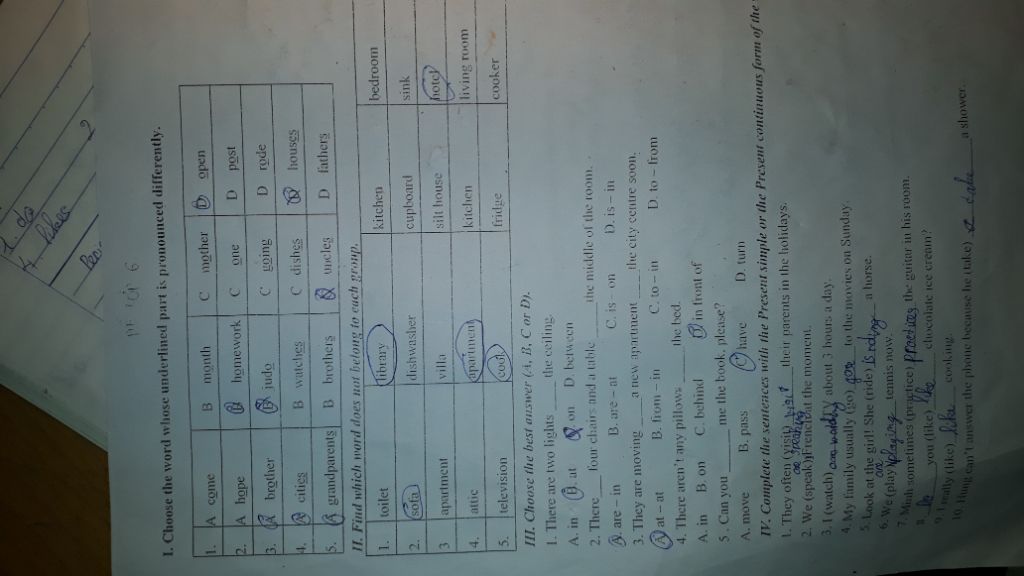 ĐỀ SỐ 6
I. Choose the word whose underlined part is pronounced differently.
1. A come B month C mother D open
2. A hope B homework C one D post
3. A brother B judo C going D rode
4. A cities B watches C dishes D houses
5. A grandparents B brothers C uncles D fathers
II. Find which word does not belong to each group.
1. toilet library kitchen bedroom
2. sofa dishwasher cupboard sink
3 apartment villa stilt house hotel
4. attic apartment kitchen living room
5. television cook fridge cooker
III. Choose the best answer (A, B, C or D).
1. There are two lights ____ the ceiling.
A. in B. at C. on D. between
2. There ____ four chairs and a table ____ the middle of the room.
A. are – in B. are – at C. is – on D. is – in
3. They are moving ____ a new apartment ____ the city centre soon.
A. at – at B. from – in C. to – in D. to – from
4. There aren't any pillows ____ the bed.
A. in B. on C. behind D. in front of
5. Can you ____ me the book, please?
A. move B. pass C. have D. turn
IV. Complete the sentences with the Present simple or the Present continuous form of the
1. They often (visit) visit their parents in the holidays.
2. We (speak) French at the moment.
3. I (watch) about 3 hours a day.
4. My family usually (go) goes to the movies on Sunday.
5. Look at the girl! She (ride) is riding a horse.
6. We (play) are playing tennis now.
7. Minh sometimes (practice) practices the guitar in his room.
8. do you (like) like chocolate ice cream?
9. I really (like) like cooking.
10. Hung can't answer the phone because he (take) ____ a shower.